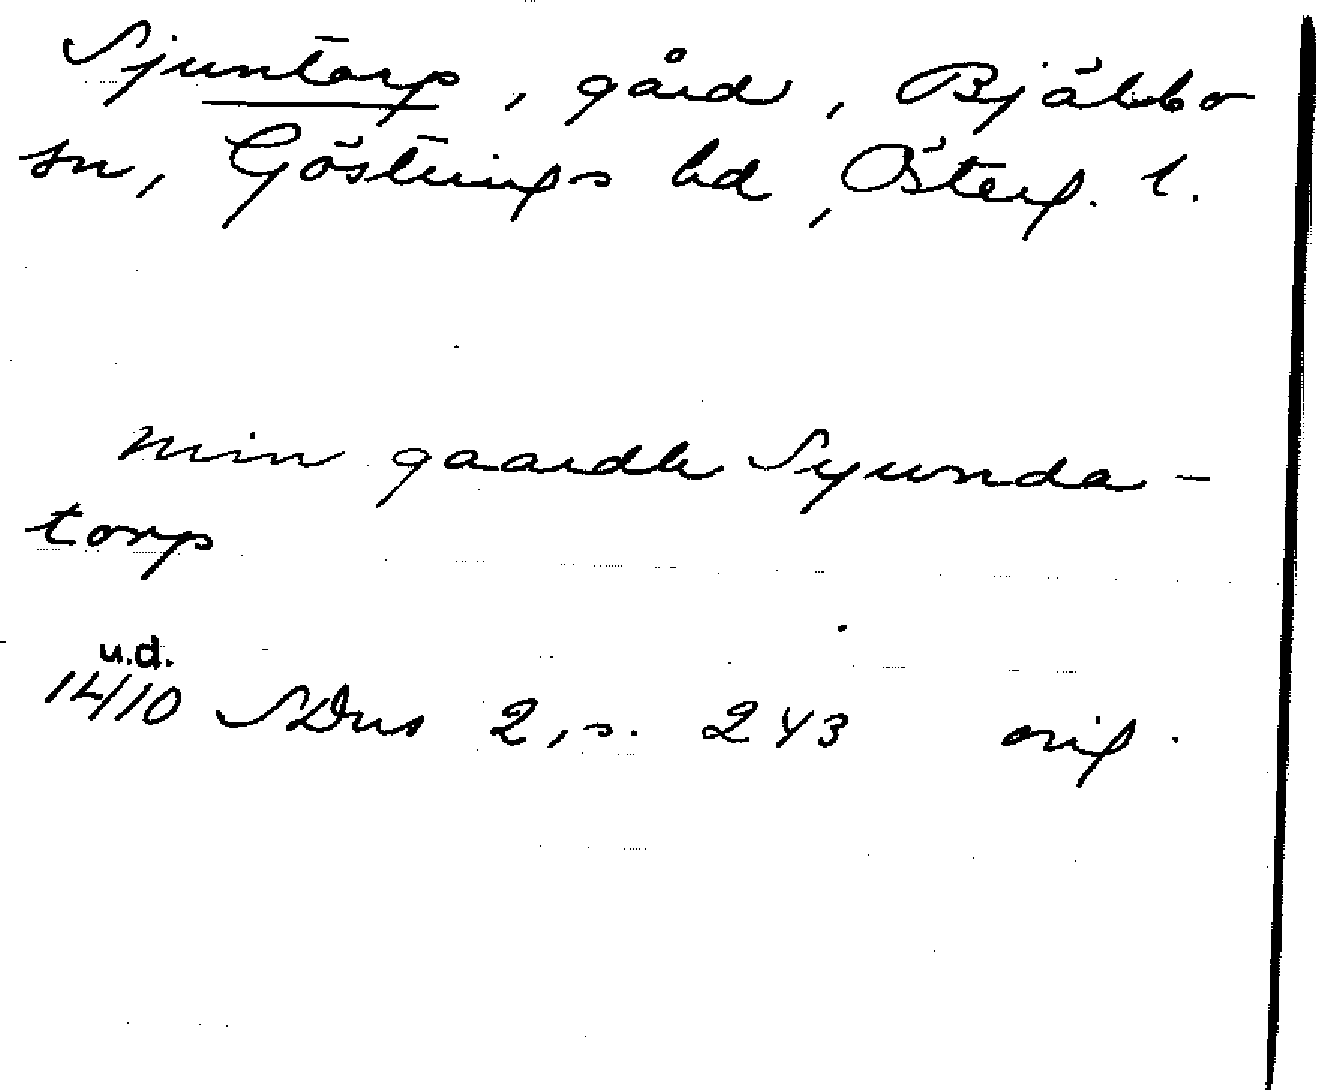 Sjuntorp, gård, Bjälbo
sn, Göstrings hd, Österg. l.
min gaardh Syunda-
torp
u.d.
14/10 SDns 2, s. 243 orig.